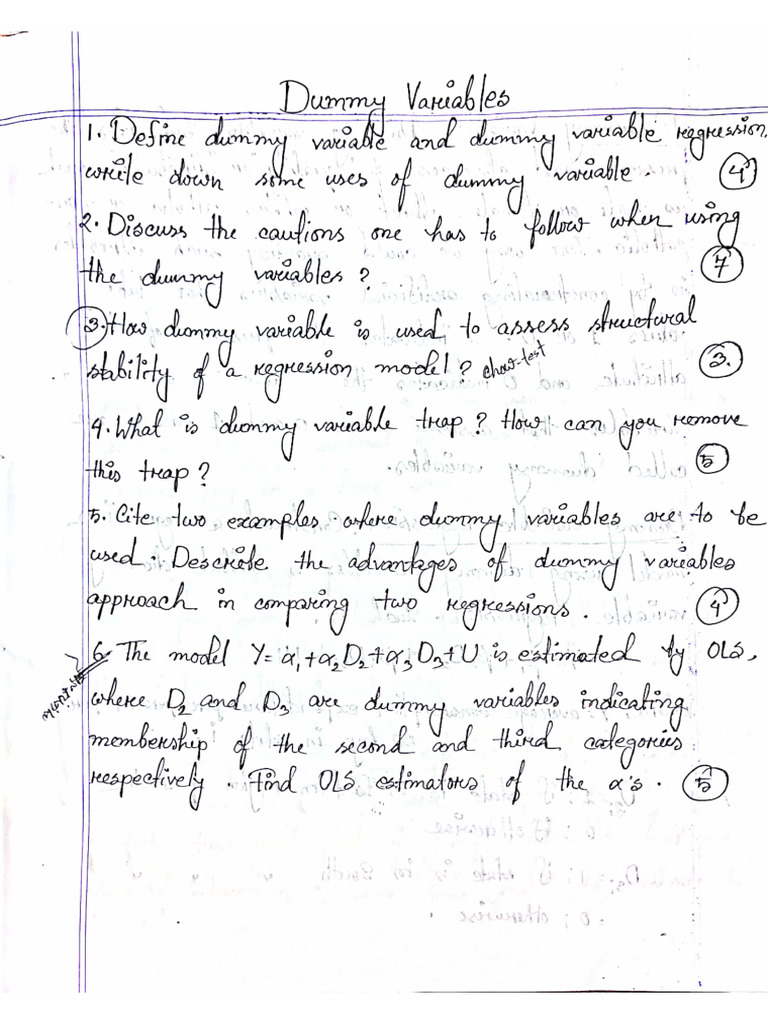 Dummy Variables
1. Define dummy variable and dummy variable regression,
write down some uses of dummy variable. 4
2. Discuss the cautions one has to follow when using
the dummy variables? 7
3. How dummy variable is used to assess structural
stability of a regression model? chow-test 3.
4. What is dummy variable trap? How can you remove
this trap? 5
5. Cite two examples where dummy variables are to be
used. Describe the advantages of dummy variables
approach in comparing two regressions. 4
6. The model Y = α₁+α₂D₂+α₃D₃+U is estimated by OLS,
where D₂ and D₃ are dummy variables indicating
membership of the second and third categories
respectively. Find OLS estimators of the α's. 5